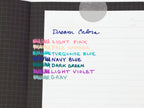 Dream Colors
LIGHT PINK
PALE ORANGE
TURQUOISE BLUE
NAVY BLUE
DARK GREEN
LIGHT VIOLET
GRAY